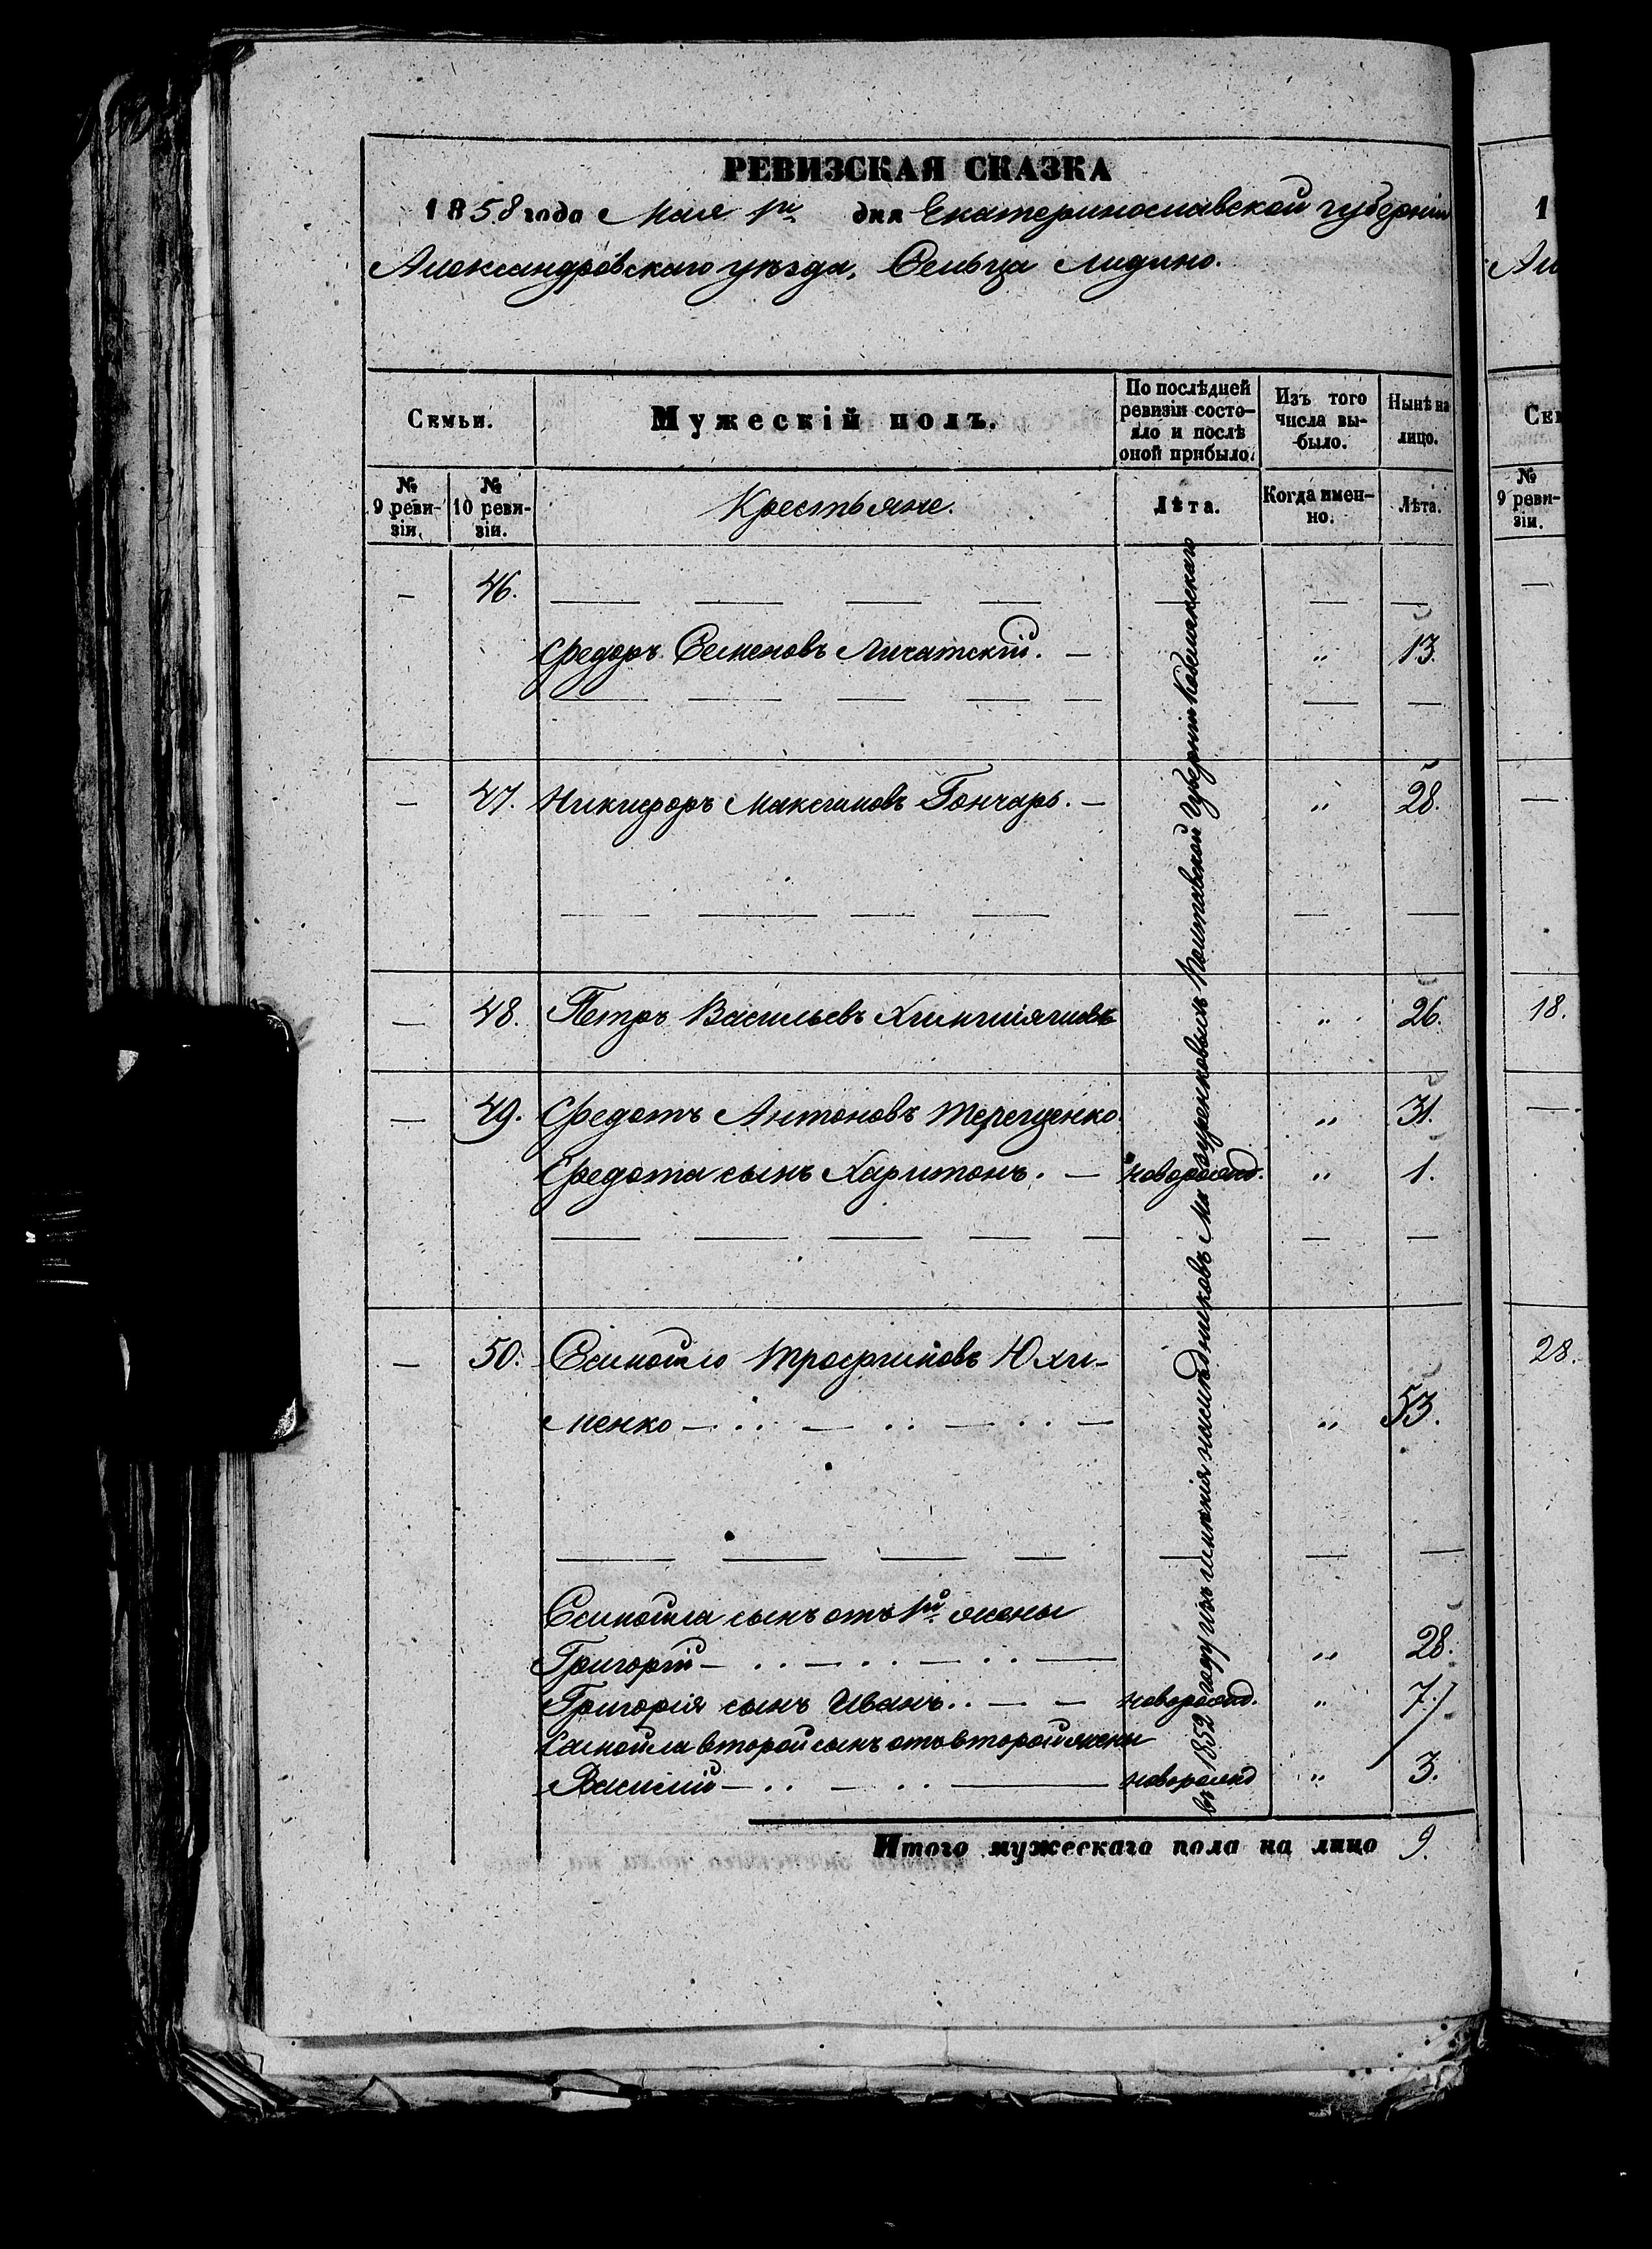 РЕВИЗСКАЯ СКАЗКА
1858 года Мая 1го дня Екатеринославской губернiи
Александровскаго уѣзда, Сельца Лидино.
Семьи.
Мужескій полъ.
По послѣдней ревизіи состо-
яло и послѣ оной прибыло.
Изъ того числа вы-
было.
Нынѣ на лицо.
№ 9 реви-
зіи.
№ 10 реви-
зіи.
Крестьяне.
Лѣта.
Когда имен-
но.
Лѣта.
— 46.
Федоръ Семеновъ Личатскій. — „ 13.
— 47. Никифоръ Максимовъ Гончаръ. — „ 28.
— 48. Петръ Васильевъ „ 26.
— 49. Федотъ Антоновъ Терещенко „ 31.
Федота сынъ Харитонъ. — новорожд. „ 1.
— 50. Самойло Трофимовъ Юхи-
менко — „ 53.
Самойла сынъ отъ 1й жены
Григорій — „ 28.
Григорія сынъ Иванъ. — новорожд. „ 7.
Самойла второй сынъ отъ второй жены
Василий — новорожд „ 3.
въ 1852 году изъ имѣнія наслѣдниковъ Полтавской Губерніи Кобелякскаго
Итого мужескаго пола на лицо 9.
1
Ал
Сем
№ 9 реви-
зіи.
—
—
18.
—
28.